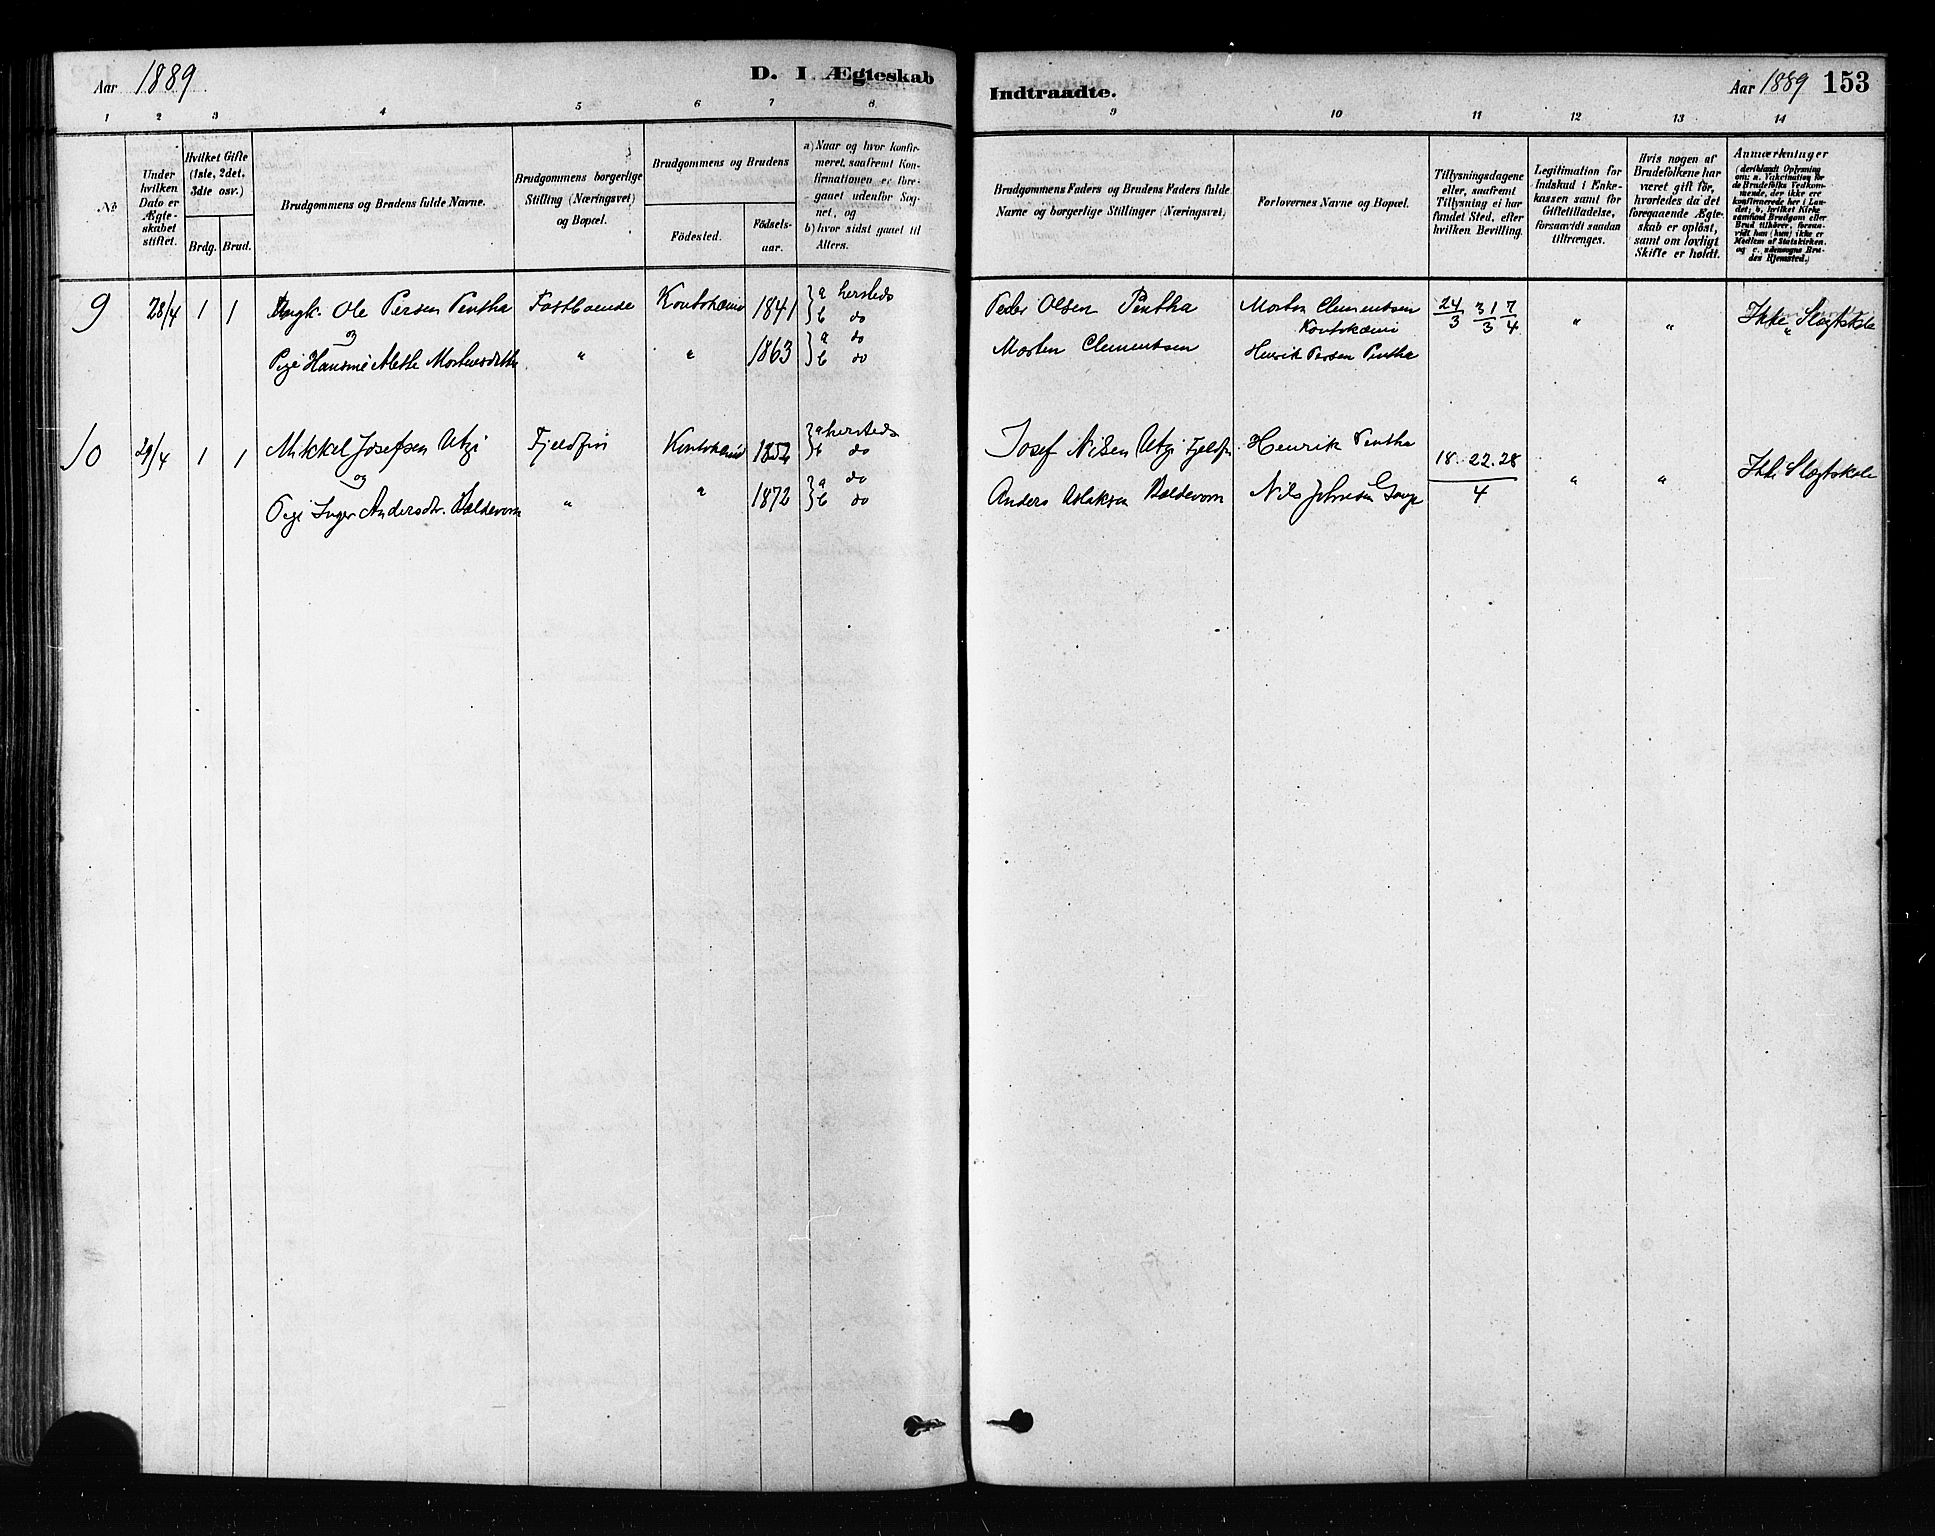 Aar 1889
D. I Ægteskab
Indtraadte.
Aar 1889 153
1 2 3 4 5 6 7 8 9 10 11 12 13 14
№
Under hvilken Dato er Ægteskabet stiftet.
Hvilket Gifte (1ste, 2det, 3die osv.)
Brdg. Brud.
Brudgommens og Brudens fulde Navne.
Brudgommens borgerlige Stilling (Næringsvei) og Bopæl.
Brudgommens og Brudens
Födested. Födsels-aar.
a) Naar og hvor konfirmeret, saafremt Konfirmationen er foregaaet udenfor Sognet, og
b) hvor sidst gaaet til Alters.
Brudgommens Faders og Brudens Faders fulde Navne og borgerlige Stillinger (Næringsvei)
Forlovernes Navne og Bopæl.
Tillysningsdagene eller, saafremt Tillysning ei har fundet Sted, efter hvilken Bevilling.
Legitimation for Indskud i Enkekassen samt for Giftetilladelse, forsaavidt saadan tiltrænges.
Hvis nogen af Brudefolkene har været gift før, hvorledes da det foregaaende Ægteskab er opløst, samt om lovligt Skifte er holdt.
Anmærkninger (deriblandt Oplysning om: a. Vakcination for de Brudefolks Vedkommende, der ikke ere konfirmerede her i Landet; b. hvilket Kirkesamfund Brudgom eller Brud tilhører, forsaavidt han (hun) ikke er Medlem af Statskirken, og c. udensogns Brudes Hjemsted.)
9 28/4 1 1 Ungk. Ole Persen Pentha Fastboende Koutokæino 1841 a hersteds Peder Olsen Pentha Morten Clementsen 24/3 31/3 7/4 " " Ikke Slægtskab
og b do Koutokæino
Pige Hansine Mortensdatter " " 1863 a do Morten Clementsen Henrik Persen Pentha
b do
10 29/4 1 1 Mikkel Josefsen Utzi Fjeldfin Koutokæino 1852 a hersteds Josef Nilsen Utzi Fjeldfin Henrik Pentha 18. 22. 28 / 4 " " Ikke Slægtskab
og b do
Pige Inger Andersdtr. Bældevom " " 1872 a do Anders Aslaksen Bældevom Nils Johnsen
b do